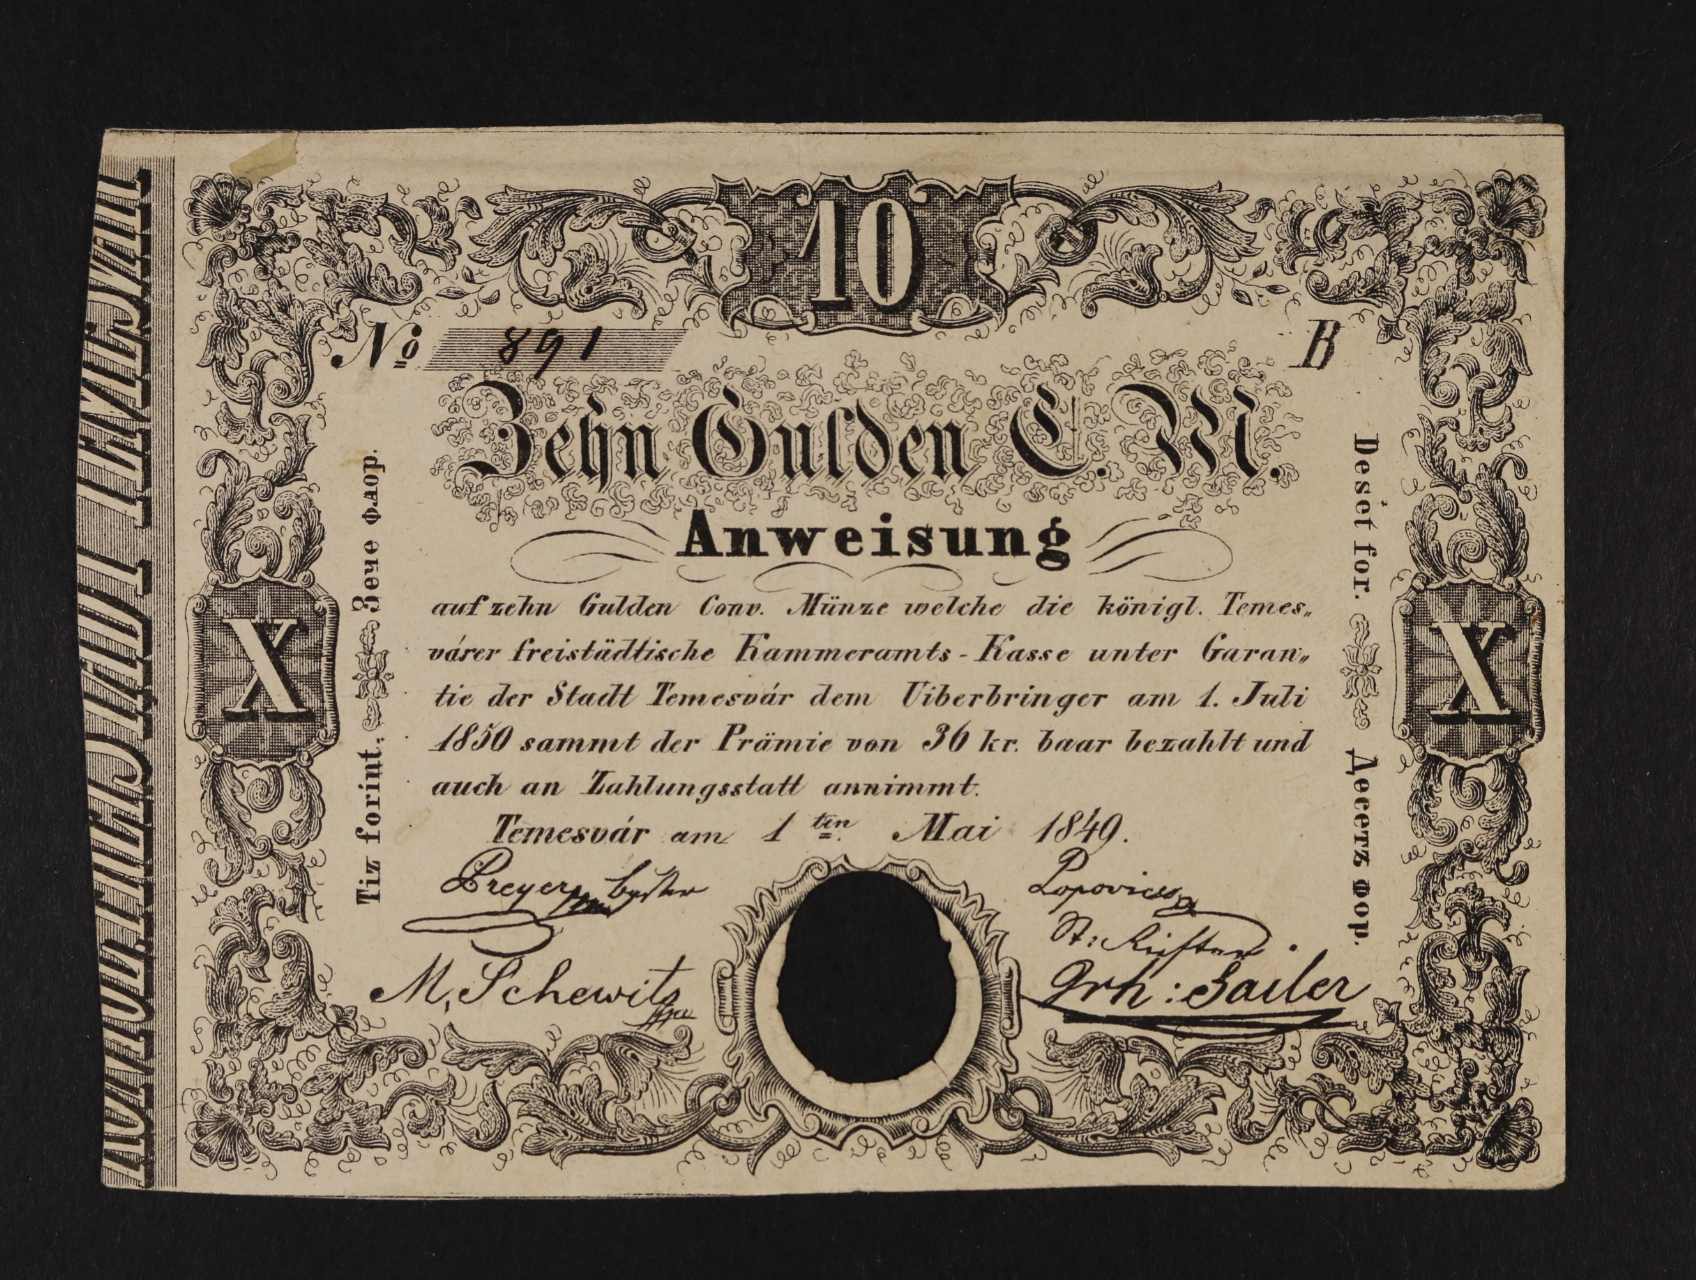 KÖNIGL. FREISTADT TEMESVÁR
10
No 891
B
Zehn Gulden C. M.
Anweisung
auf zehn Gulden Conv. Münze welche die königl. Temes„
várer freistädtische Kammeramts-Kasse unter Garan„
tie der Stadt Temesvár dem Uiberbringer am 1. Juli
1850 sammt der Prämie von 36 kr. baar bezahlt und
auch an Zahlungsstatt annimmt.
Temesvár am 1ten Mai 1849.
Preyer
Popovics
M. Schewits
Grh: Sailer
X
Tiz forint. Зече Флор.
Deset for. Десетъ Фор.
X